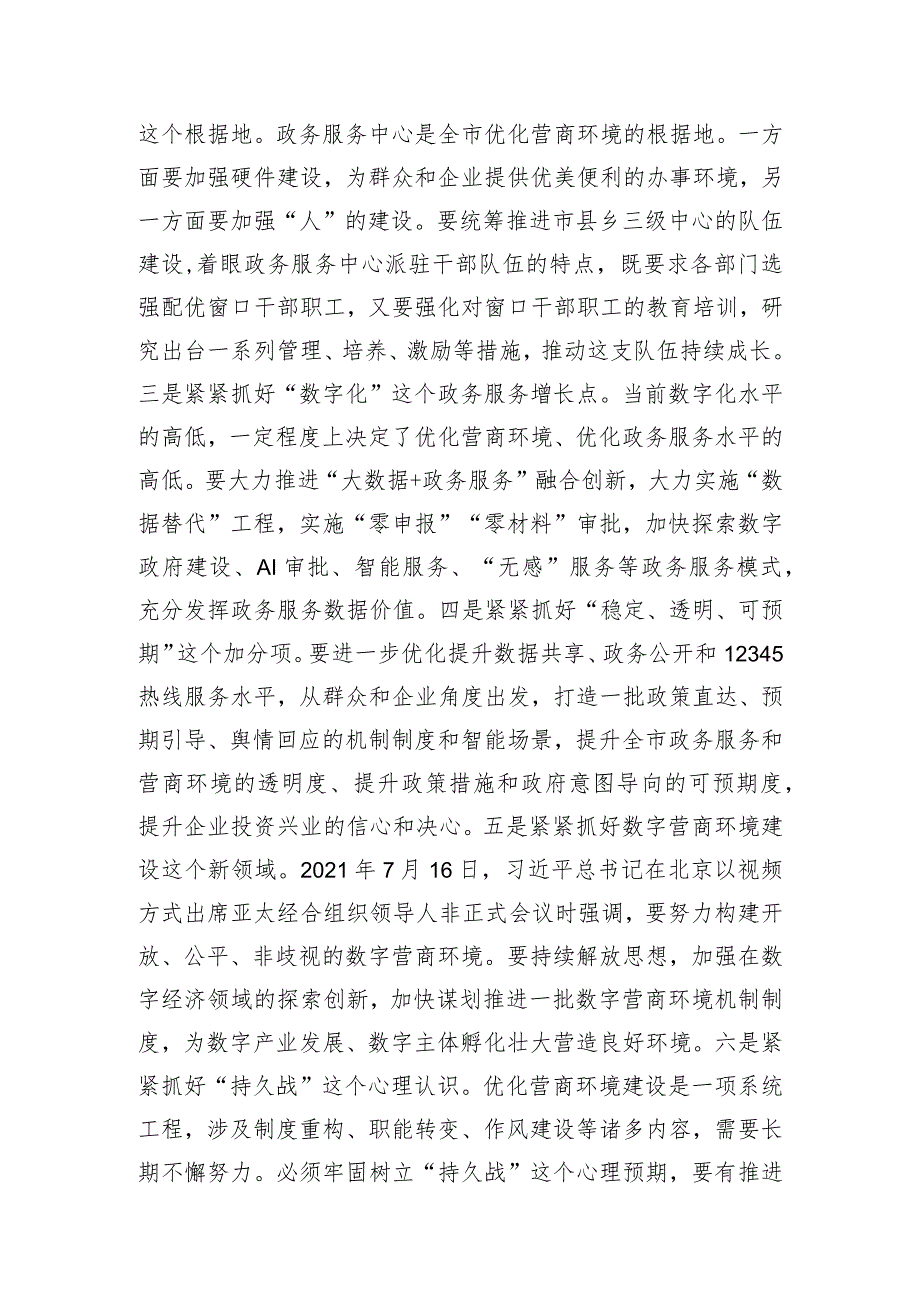 这个根据地。政务服务中心是全市优化营商环境的根据地。一方
面要加强硬件建设，为群众和企业提供优美便利的办事环境，另
一方面要加强“人”的建设。要统筹推进市县乡三级中心的队伍
建设,着眼政务服务中心派驻干部队伍的特点，既要求各部门选
强配优窗口干部职工，又要强化对窗口干部职工的教育培训，研
究出台一系列管理、培养、激励等措施，推动这支队伍持续成长。
三是紧紧抓好“数字化”这个政务服务增长点。当前数字化水平
的高低，一定程度上决定了优化营商环境、优化政务服务水平的
高低。要大力推进“大数据+政务服务”融合创新，大力实施“数
据替代”工程，实施“零申报”“零材料”审批，加快探索数字
政府建设、AI 审批、智能服务、“无感”服务等政务服务模式，
充分发挥政务服务数据价值。四是紧紧抓好“稳定、透明、可预
期”这个加分项。要进一步优化提升数据共享、政务公开和 12345
热线服务水平，从群众和企业角度出发，打造一批政策直达、预
期引导、舆情回应的机制制度和智能场景，提升全市政务服务和
营商环境的透明度、提升政策措施和政府意图导向的可预期度，
提升企业投资兴业的信心和决心。五是紧紧抓好数字营商环境建
设这个新领域。2021 年 7 月 16 日，习近平总书记在北京以视频
方式出席亚太经合组织领导人非正式会议时强调，要努力构建开
放、公平、非歧视的数字营商环境。要持续解放思想，加强在数
字经济领域的探索创新，加快谋划推进一批数字营商环境机制制
度，为数字产业发展、数字主体孵化壮大营造良好环境。六是紧
紧抓好“持久战”这个心理认识。优化营商环境建设是一项系统
工程，涉及制度重构、职能转变、作风建设等诸多内容，需要长
期不懈努力。必须牢固树立“持久战”这个心理预期，要有推进